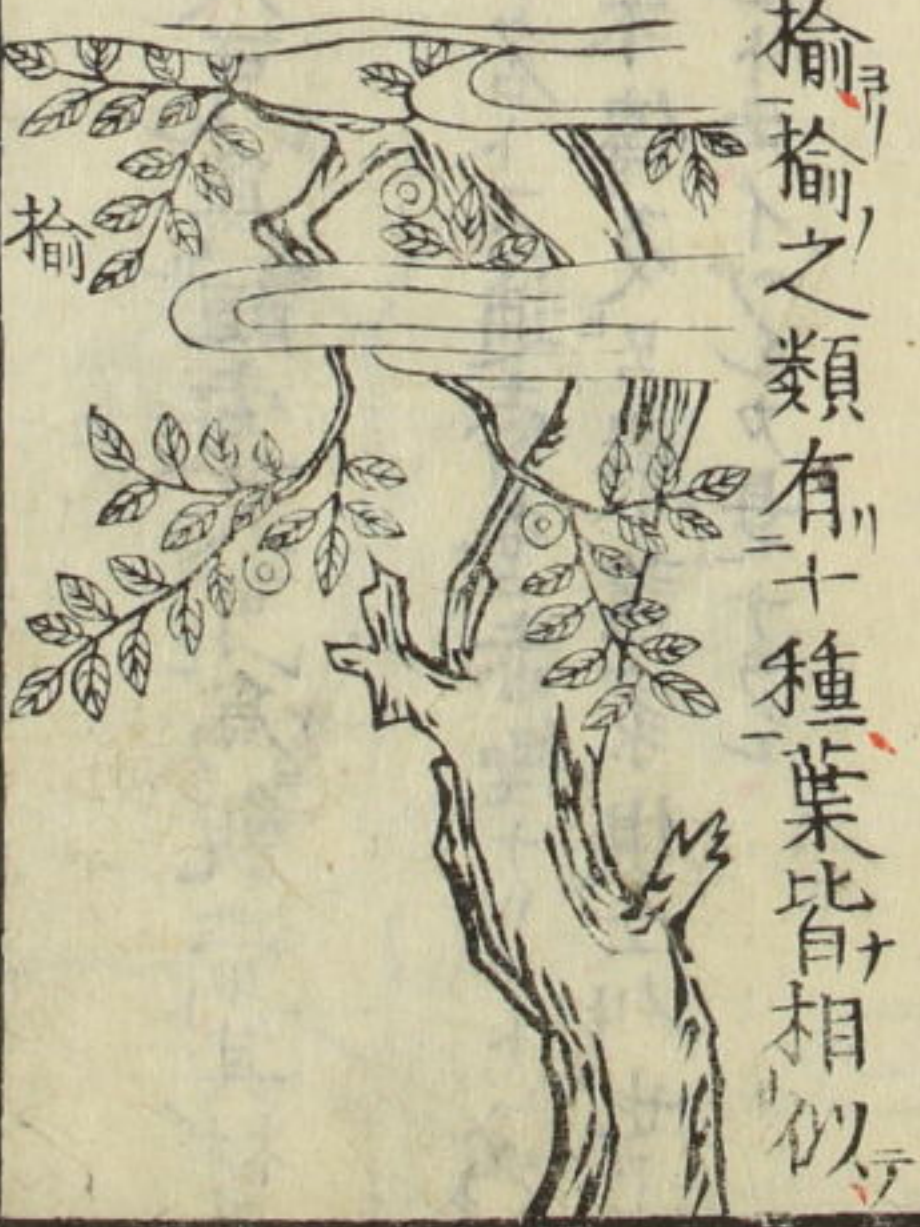 榆一榆ノ之類有リ二十種一葉皆ナ相似テ
榆